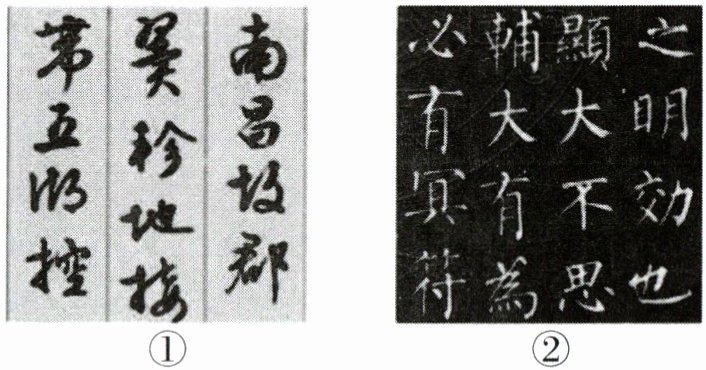 南昌故郡
翼軫地接
帶五湖控
①
之明効也
顯大不思
輔大有為
必有冥符
②